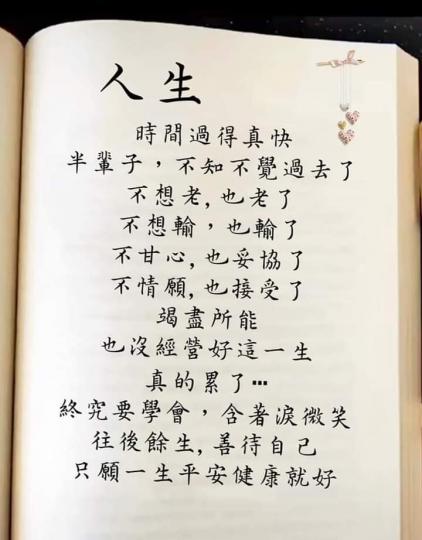 人生
時間過得真快
半輩子，不知不覺過去了
不想老,也老了
不想輸，也輸了
不甘心,也妥協了
不情願,也接受了
竭盡所能
也沒經營好這一生
真的累了…
終究要學會，含著淚微笑
往後餘生,善待自己
只願一生平安健康就好